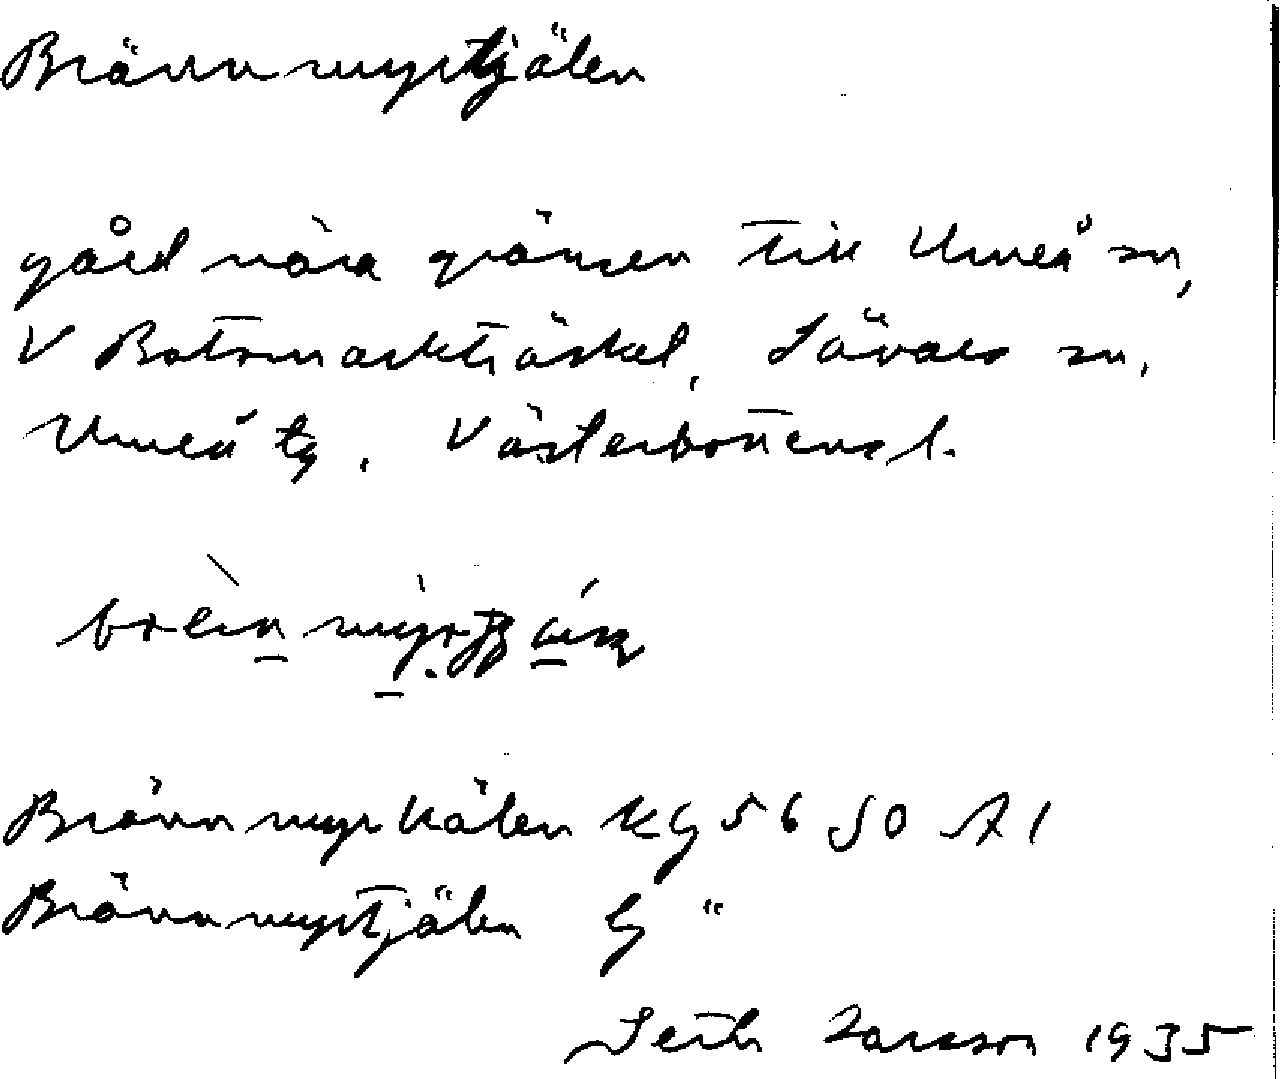 Brännmyrtjälen
gård nära gränsen till Umeå sn,
V Botsmarkträsket, Sävars sn,
Umeå tg, Västerbottens l.
Brännmyrkälen KG 56 50 A 1
Brännmyrtjälen G "
Seth Larsson 1935